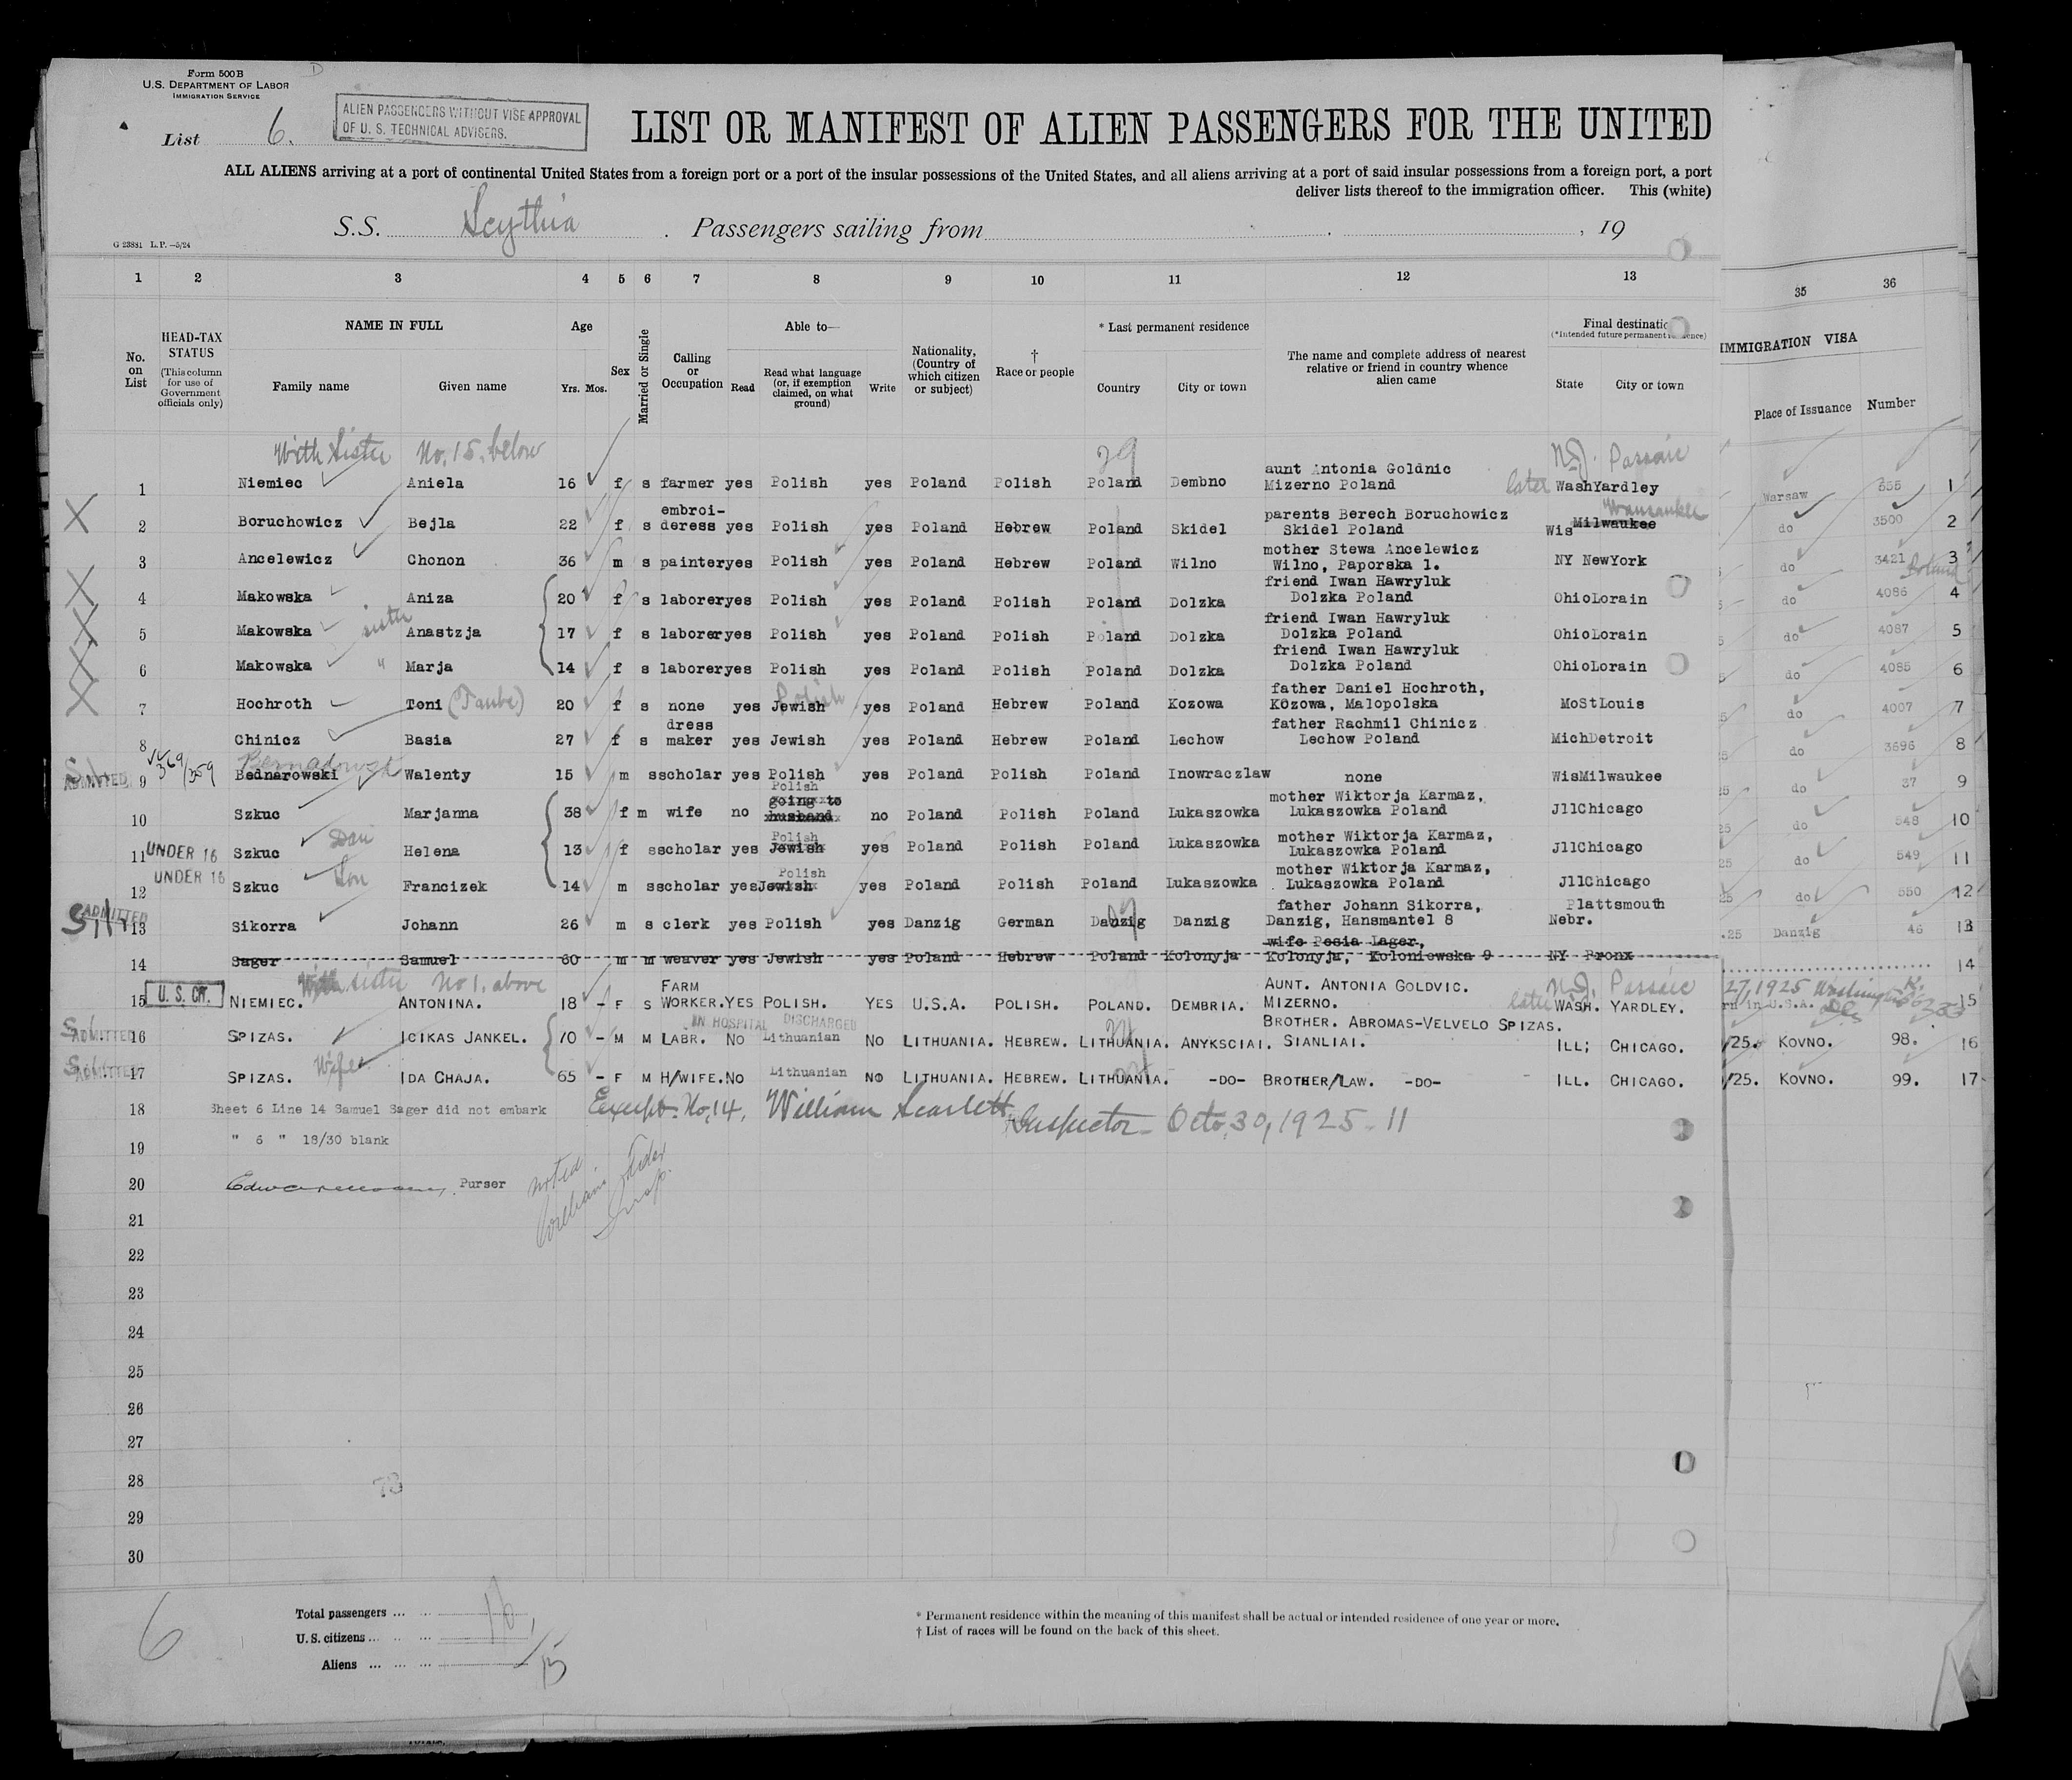 Form 500B
U.S. DEPARTMENT OF LABOR
IMMIGRATION SERVICE
List 6.
ALIEN PASSENGERS WITHOUT VISE APPROVAL
OF U. S. TECHNICAL ADVISERS.
LIST OR MANIFEST OF ALIEN PASSENGERS FOR THE UNITED
ALL ALIENS arriving at a port of continental United States from a foreign port or a port of the insular possessions of the United States, and all aliens arriving at a port of said insular possessions from a foreign port, a port
deliver lists thereof to the immigration officer. This (white)
S.S. Scythia . Passengers sailing from , 19
G 23881 L.P.—5/24
1 2 3 4 5 6 7 8 9 10 11 12 13 35 36
No. on List
HEAD-TAX STATUS
(This column for use of Government officials only)
NAME IN FULL
Family name Given name
Age
Yrs. Mos.
Sex
Married or Single
Calling or Occupation
Able to—
Read
Read what language (or, if exemption claimed, on what ground)
Write
Nationality, (Country of which citizen or subject)
† Race or people
* Last permanent residence
Country City or town
The name and complete address of nearest relative or friend in country whence alien came
Final destination
(*Intended future permanent residence)
State City or town
IMMIGRATION VISA
Place of Issuance Number
With Sister No. 15. below 29 N.J. Passaic
1 Niemiec Aniela 16 f s farmer yes Polish yes Poland Polish Poland Dembno aunt Antonia Goldnic Mizerno Poland later Wash Yardley Warsaw 555 1
2 Boruchowicz Bejla 22 f s embroi-deress yes Polish yes Poland Hebrew Poland Skidel parents Berech Boruchowicz Skidel Poland Wis Milwaukee Wausaukee do 3500 2
3 Ancelewicz Chonon 36 m s painter yes Polish yes Poland Hebrew Poland Wilno mother Stewa Ancelewicz Wilno, Paporska 1. NY NewYork do 3421 3
4 Makowska Aniza 20 f s laborer yes Polish yes Poland Polish Poland Dolzka friend Iwan Hawryluk Dolzka Poland Ohio Lorain do 4086 4
5 Makowska sister Anastzja 17 f s laborer yes Polish yes Poland Polish Poland Dolzka friend Iwan Hawryluk Dolzka Poland Ohio Lorain do 4087 5
6 Makowska " Marja 14 f s laborer yes Polish yes Poland Polish Poland Dolzka friend Iwan Hawryluk Dolzka Poland Ohio Lorain do 4085 6
7 Hochroth Toni (Taube) 20 f s none yes Jewish Polish yes Poland Hebrew Poland Kozowa father Daniel Hochroth, Kozowa, Malopolska Mo StLouis do 4007 7
8 Chinicz Basia 27 f s dress maker yes Jewish yes Poland Hebrew Poland Lechow father Rachmil Chinicz Lechow Poland Mich Detroit do 3696 8
ADMITTED 9 369/359 Bednarowski Walenty 15 m s scholar yes Polish yes Poland Polish Poland Inowraczlaw none Wis Milwaukee do 37 9
10 Szkuc Marjanna 38 f m wife no Polish going to husband no Poland Polish Poland Lukaszowka mother Wiktorja Karmaz, Lukaszowka Poland Jll Chicago do 548 10
11 UNDER 16 Szkuc Dau Helena 13 f s scholar yes Polish Jewish yes Poland Polish Poland Lukaszowka mother Wiktorja Karmaz, Lukaszowka Poland Jll Chicago do 549 11
12 UNDER 16 Szkuc Son Francizek 14 m s scholar yes Polish Jewish yes Poland Polish Poland Lukaszowka mother Wiktorja Karmaz, Lukaszowka Poland Jll Chicago do 550 12
ADMITTED 13 Sikorra Johann 26 m s clerk yes Polish yes Danzig German Danzig Danzig father Johann Sikorra, Danzig, Hansmantel 8 Nebr. Plattsmouth .25 Danzig 46 13
14 Sager Samuel 60 m m weaver yes Jewish yes Poland Hebrew Poland Kolonyja wife Pesia Lager, Kolonyja, Koloniewska 9 NY Bronx 14
With sister No 1. above N.J. Passaic
15 U. S. CIT. NIEMIEC. ANTONINA. 18 - F S FARM WORKER. YES POLISH. YES U.S.A. POLISH. POLAND. DEMBRIA. AUNT. ANTONIA GOLDVIC. MIZERNO. later WASH. YARDLEY. 27, 1925 in U.S.A. 15
IN HOSPITAL DISCHARGED
ADMITTED 16 SPIZAS. ICIKAS JANKEL. 70 - M M LABR. NO Lithuanian NO LITHUANIA. HEBREW. LITHUANIA. ANYKSCIAI. BROTHER. ABROMAS-VELVELO SPIZAS. SIANLIAI. ILL; CHICAGO. /25. KOVNO. 98. 16
ADMITTED 17 SPIZAS. Wife IDA CHAJA. 65 - F M H/WIFE. NO Lithuanian NO LITHUANIA. HEBREW. LITHUANIA. -DO- BROTHER/LAW. -DO- ILL. CHICAGO. /25. KOVNO. 99. 17
18 Sheet 6 Line 14 Samuel Sager did not embark Except No. 14. William Scarlett Inspector - Oct. 30, 1925 - 11
19 " 6 " 18/30 blank
20 Purser
noted
21
22
23
24
25
26
27
28
73
29
30
6
Total passengers ... ... 16
U. S. citizens ... .. ... 1
Aliens ... ... ... 15
* Permanent residence within the meaning of this manifest shall be actual or intended residence of one year or more.
† List of races will be found on the back of this sheet.